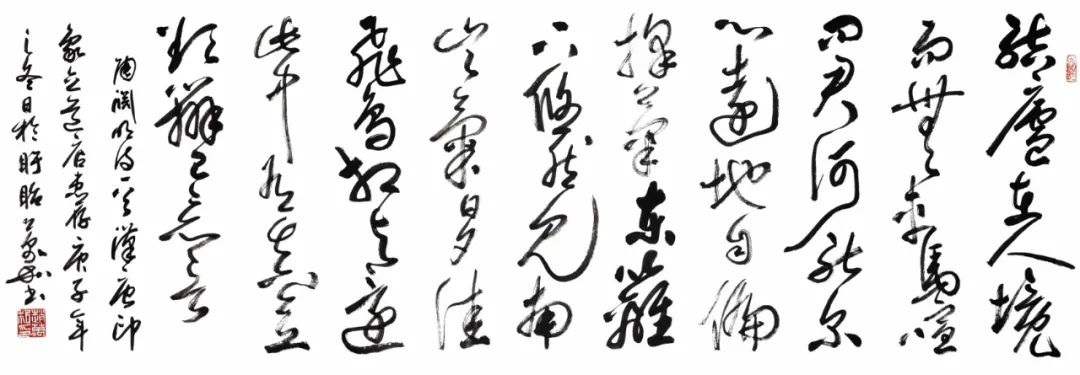 結廬在人境
而無車馬喧
問君何能尔
心遠地自偏
採菊東籬
下悠然見南
山氣日夕佳
飛鳥相與還
此中有真意
欲辨已忘言
陶淵明詩一首漢唐印
象店惠存庚子年
之冬日於盱眙書